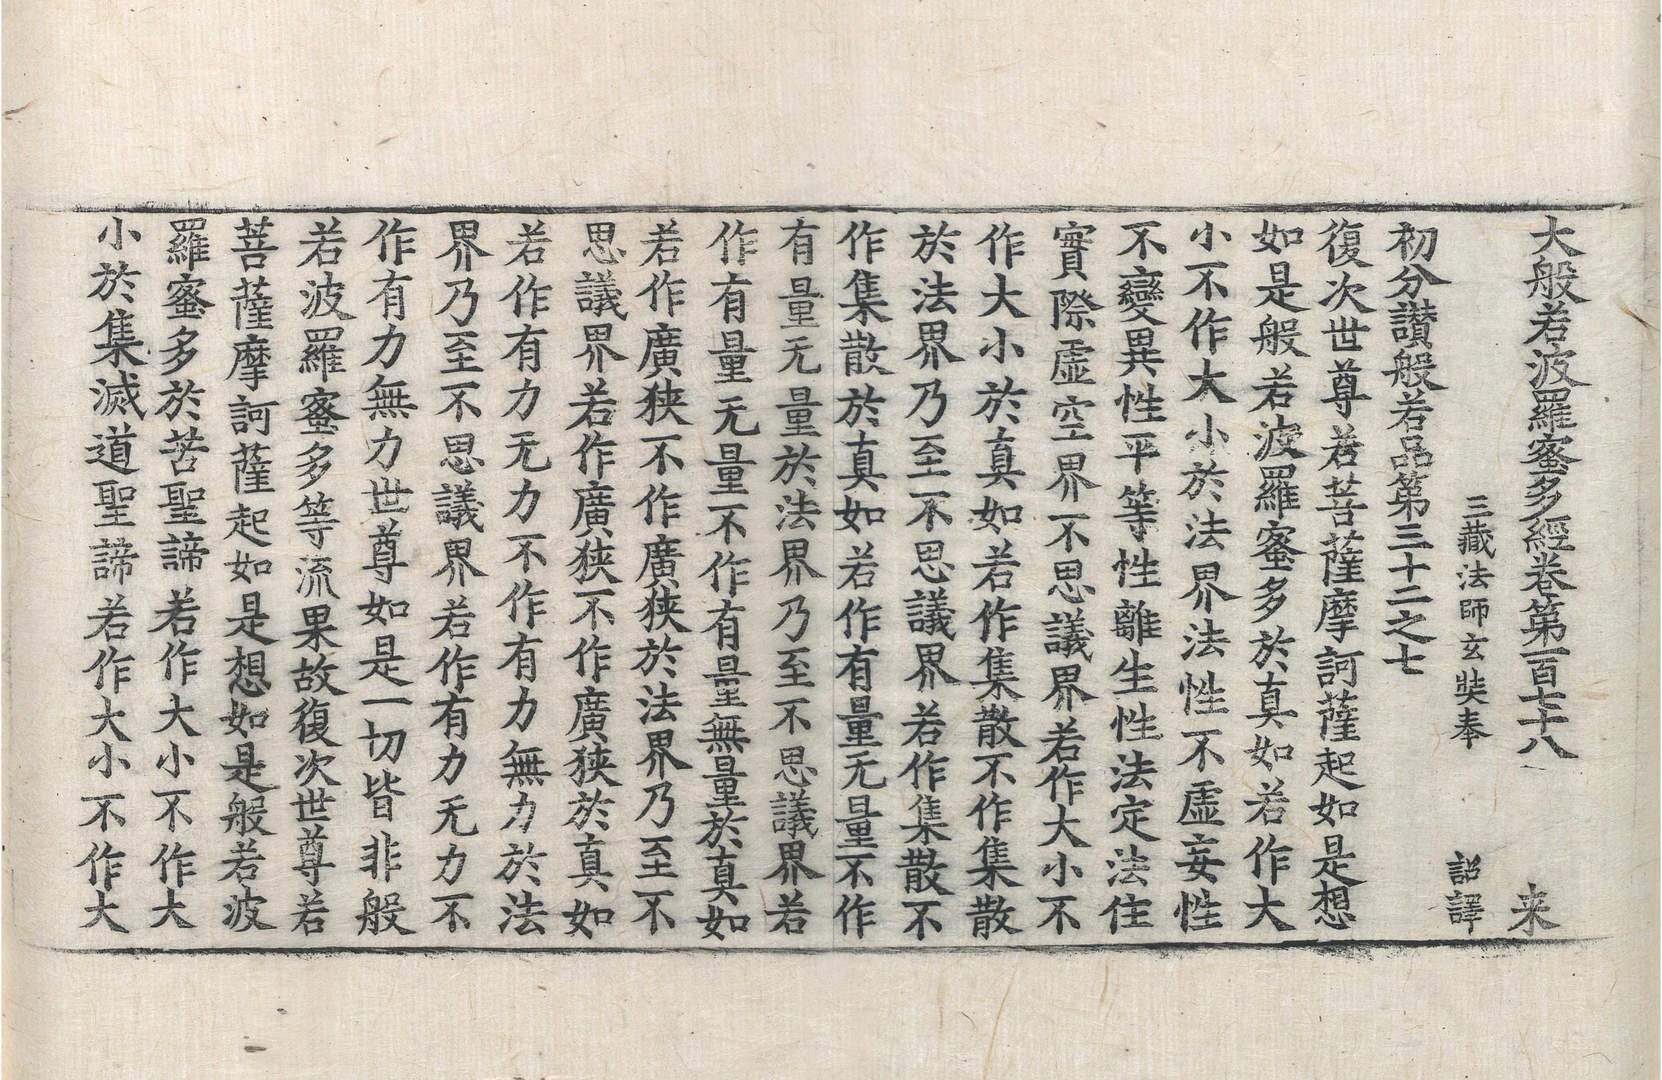 大般若波羅蜜多經卷第一百七十八 来
三藏法師玄奘奉 詔譯
初分讃般若品第三十二之七
復次世尊若菩薩摩訶薩起如是想
如是般若波羅蜜多於真如若作大
小不作大小於法界法性不虛妄性
不變異性平等性離生性法定法住
實際虛空界不思議界若作大小不
作大小於真如若作集散不作集散
於法界乃至不思議界若作集散不
作集散於真如若作有量无量不作
有量无量於法界乃至不思議界若
作有量无量不作有量無量於真如
若作廣狹不作廣狹於法界乃至不
思議界若作廣狹不作廣狹於真如
若作有力无力不作有力無力於法
界乃至不思議界若作有力无力不
作有力無力世尊如是一切皆非般
若波羅蜜多等流果故復次世尊若
菩薩摩訶薩起如是想如是般若波
羅蜜多於苦聖諦若作大小不作大
小於集滅道聖諦若作大小不作大